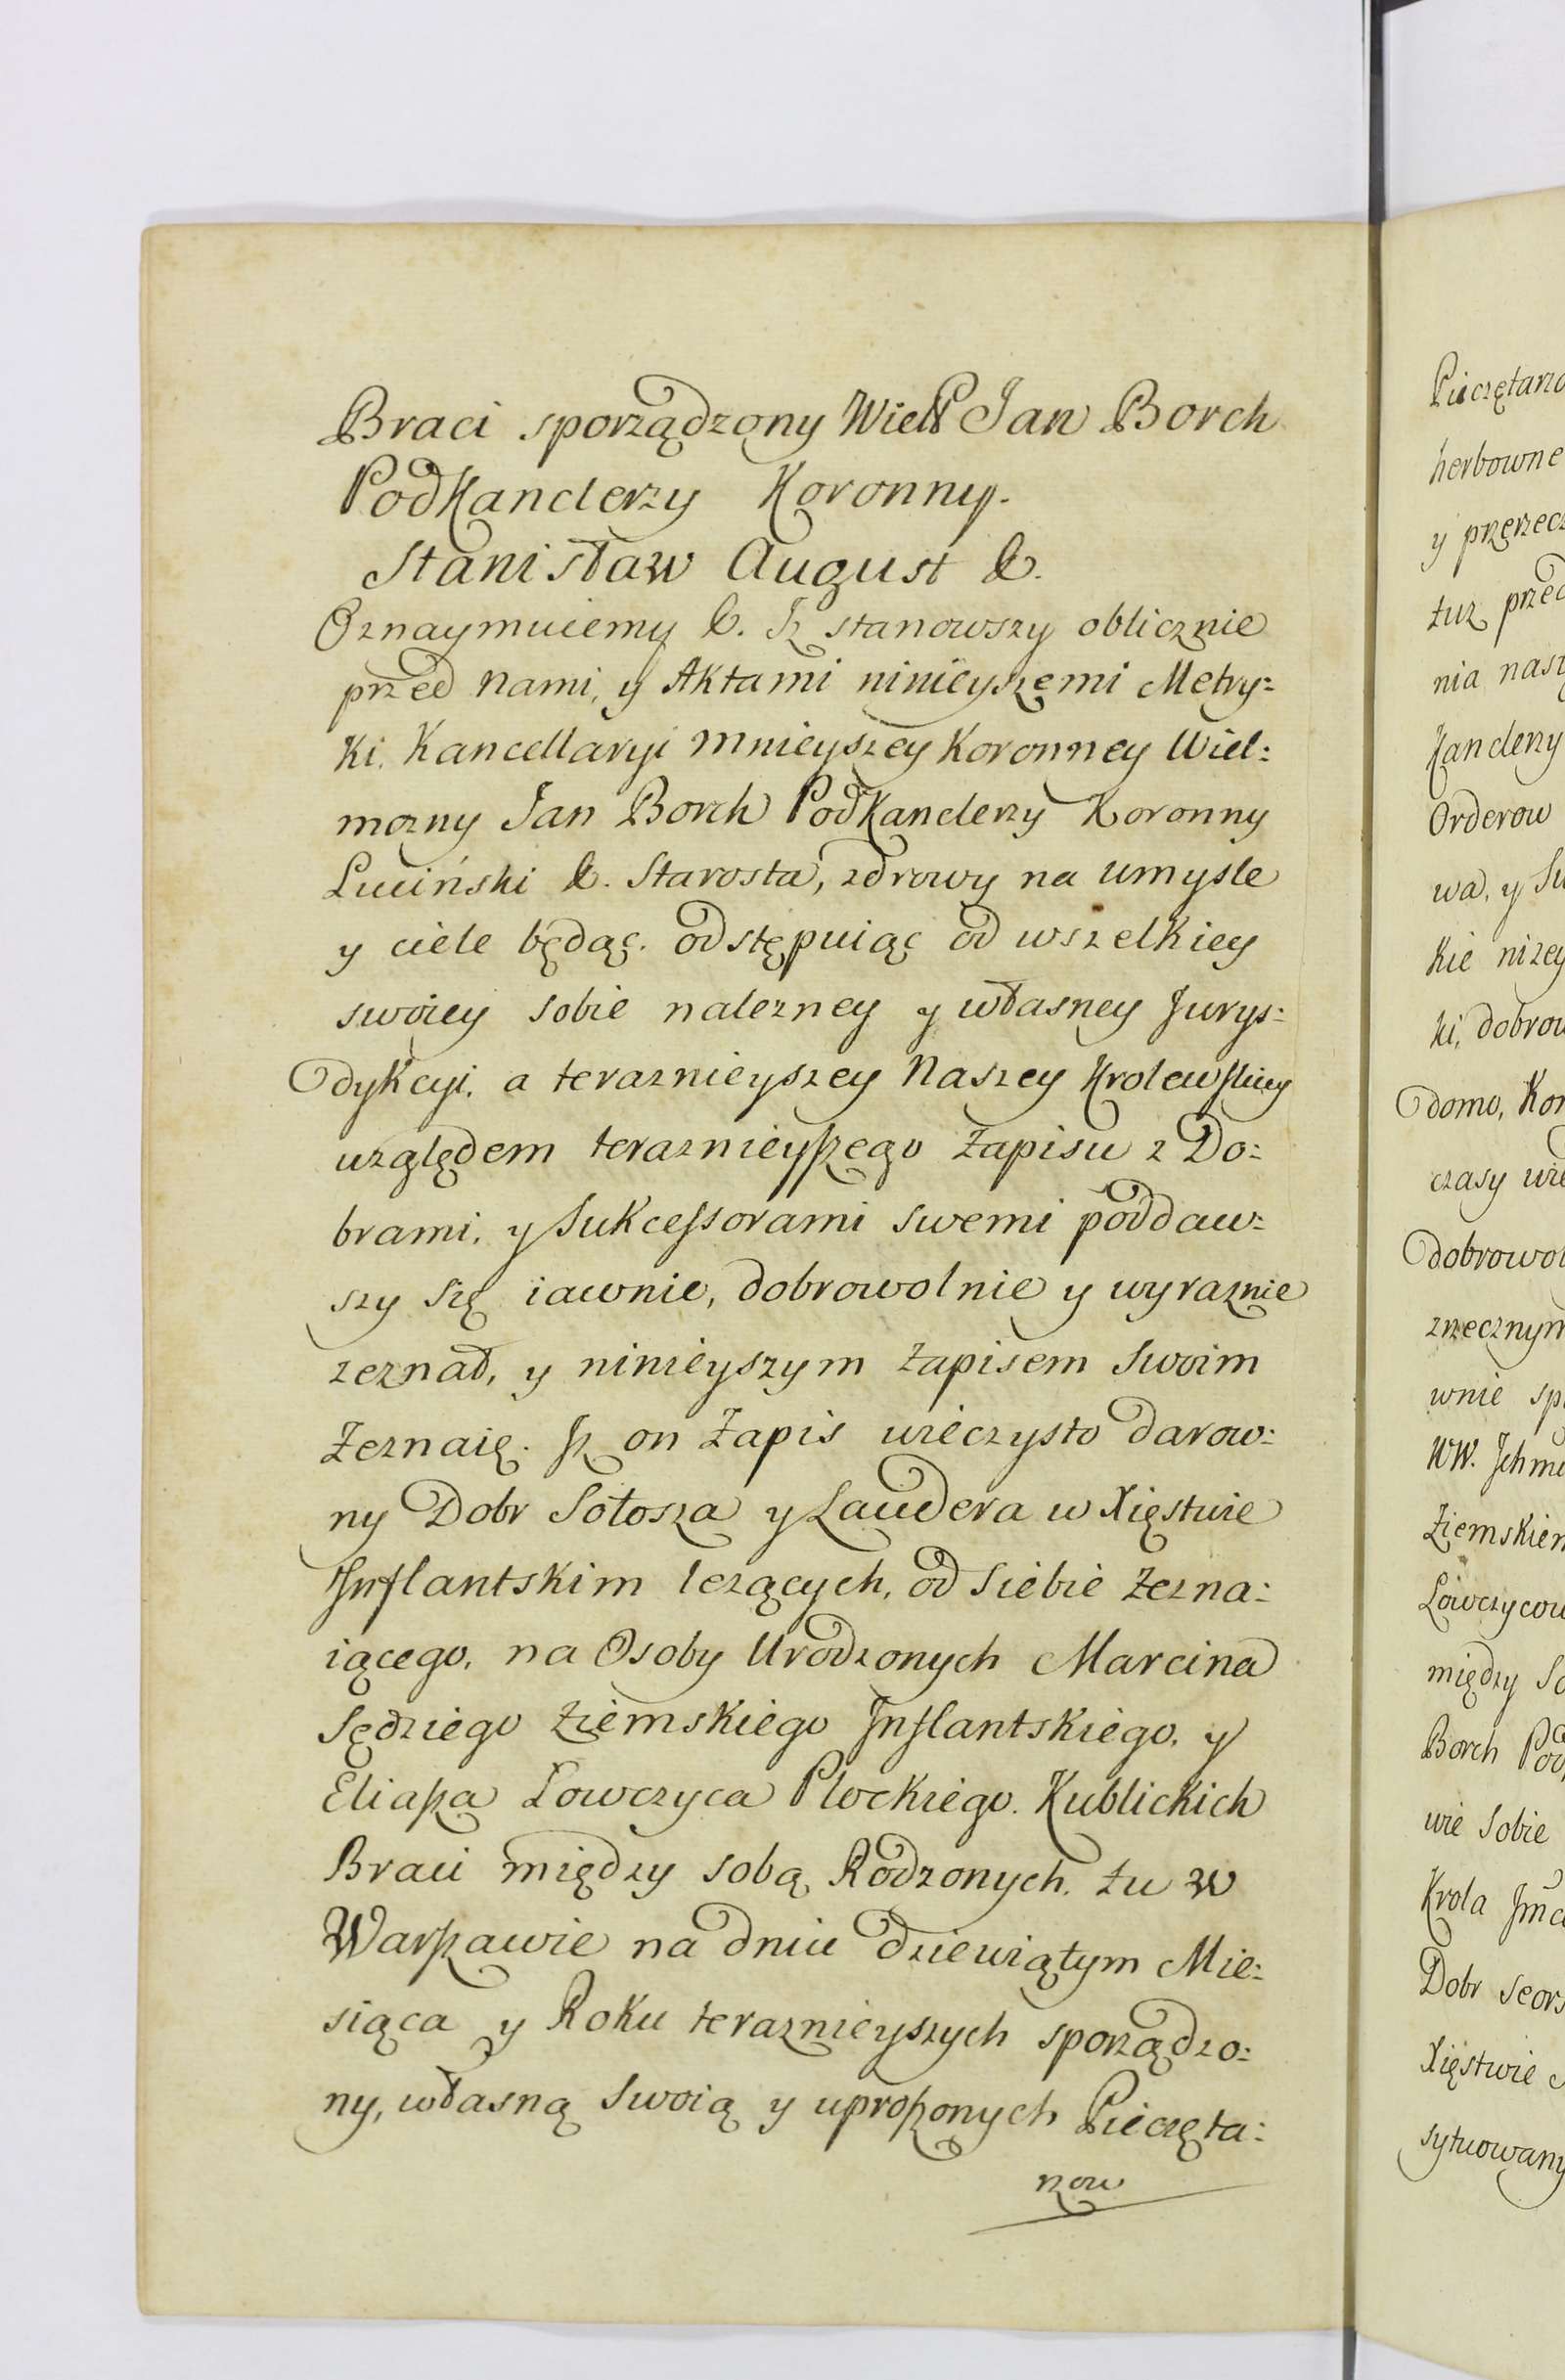 Braci sporządzony Wiel: Jan Borch
Podkanclerzy Koronny.
Stanisław August &.
Oznaymuiemy &. Iz stanowszy oblicznie
przed nami, y Aktami ninieyszemi Metry:
ki. Kancellaryi mnieyszey Koronney Wiel:
mozny Jan Borch Podkanclerzy Koronny
Luciński &. Starosta, zdrowy na umysle
y ciele będąc. odstępuiąc od wszelkiey
swoiey sobie nalezney y własney Jurys:
dykcyi, a teraznieyszey Naszey Krolewskiey
względem teraznieyszego Zapisu z Do:
brami, y Sukcessorami swemi poddaw:
szy się iawnie, dobrowolnie y wyraznie
zeznał, y ninieyszym zapisem swoim
Zeznaię. Iz on Zapis wieczysto darow:
ny Dobr Sołosza y Laudera w Xięstwie
Inflantskim lezących, od siebie Zezna:
iącego, na Osoby Urodzonych Marcina
Sędziego Ziemskiego Inflantskiego, y
Eliasza Lowczyca Plockiego. Kublickich
Braci między sobą Rodzonych. tu w
Warszawie na dniu dziewiątym Mie:
siąca y Roku teraznieyszych sporządzo:
ny, własną swoią y uproszonych Pieczęta:
rzow
Pieczętarzo
herbowne
y przerzecz
tuz przed
nia nasz
Kanclerzy
Orderow
wa, y Su
kie nizey
ki, dobrow
domo, Kon
czasy wie
dobrowol
zrzecznym
wnie sp
WW. Ichm
Ziemskiem
Lowczycow
między So
Borch Pod
wie sobie
Krola Jmc
Dobr seors
Xięstwie
sytuowany